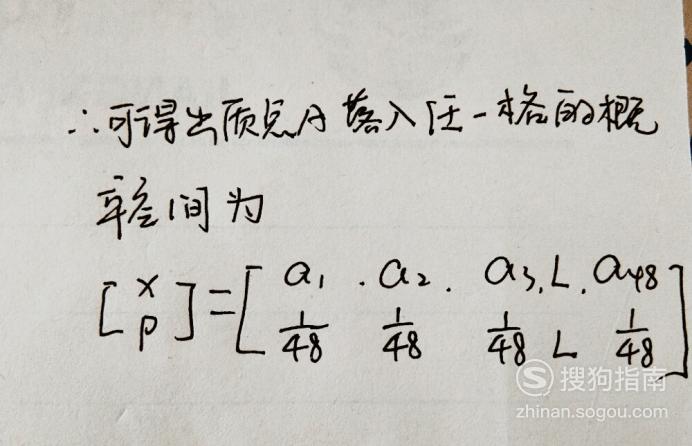 ∴可得出质点A落入任一格的概
率空间为
[x p]=[a₁ . a₂ . a₃, L . a₄₈
1/48 1/48 1/48 L 1/48]
搜狗指南
zhinan.sogou.com